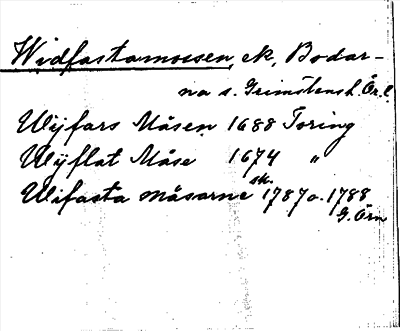 Widfastamossen, ek, Bodar-
na s. Grimstens h. Ör. l.
Wijfars Måsen 1688 Toring
Wijflat Måse 1674 "
Wifasta måsarne sk. 1787 o. 1788
G. Örn